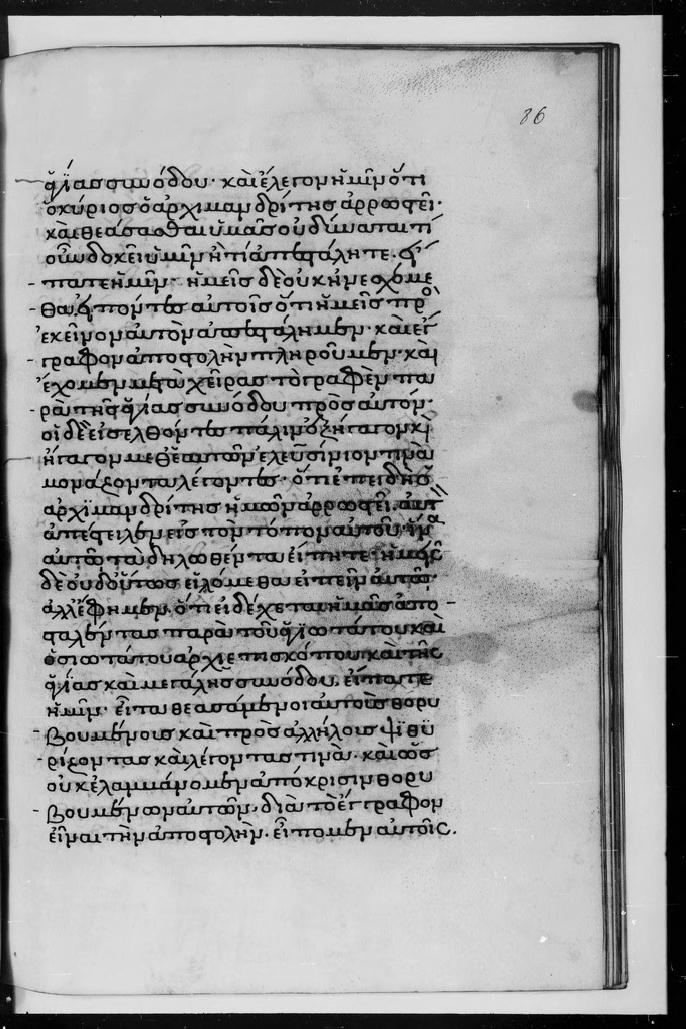 86
ἁγίας συνόδου· καὶ ἔλεγον ἡμῖν ὅτι
ὁ κύριος ὁ ἀρχιμανδρίτης ἀρρωστεῖ·
καὶ θεάσασθαι ὑμᾶς οὐ δύναται· τί
οὖν δοκεῖ ὑμῖν ἢ τί ἀπεστάλητε. εἴ
πατε ἡμῖν· ἡμεῖς δὲ οὐκ ἠνεσχόμε
θα εἰπόντες αὐτοῖς ὅτι ἡμεῖς πρὸ
ἐκεῖνον αὐτὸν ἀπεστάλημεν· καὶ ἔγ
γραφον ἀποστολὴν πληροῦμεν· καὶ
ἔχομεν μετὰ χεῖρας τὸ γραφὲν πα
ρὰ τῆς ἁγίας συνόδου πρὸς αὐτόν·
οἱ δὲ εἰσελθόντες πάλιν ἐξήγαγον κὶ
ἤγαγον μεθ' ἑαυτῶν ἐλευσίνιον τινὰ
μονάζοντα λέγοντες· ὅτι ἐπειδὴ ὁ
ἀρχιμανδρίτης ἡμῶν ἀρρωστεῖ· αὐτ
ἀπέστειλεν εἰς τὸν τόπον αὐτοῦ· ἵνα
αὐτῷ τὰ δηλωθέντα εἴπητε· ἡμεῖς
δὲ οὐδ' οὕτως εἱλόμεθα εἰπεῖν αὐτῷ·
ἀλλ' ἔφημεν· ὅτι εἰ δέχεται ἡμᾶς ἀπο
σταλέντας παρὰ τοῦ ἁγιωτάτου καὶ
ὁσιωτάτου ἀρχιεπισκόπου καὶ τῆς
ἁγίας καὶ μεγάλης συνόδου, εἴπατε
ἡμῖν· εἶτα θεασάμενοι αὐτοὺς θορυ
βουμένους καὶ πρὸς ἀλλήλους ψιθυ
ρίζοντας καὶ λέγοντας τινὰ· καὶ ὡς
οὐκ ἐλαμμάνομεν ἀπόκρισιν θορυ
βουμένων αὐτῶν· διὰ τὸ ἔγγραφον
εἶναι τὴν ἀποστολὴν· εἴπομεν αὐτοῖς.